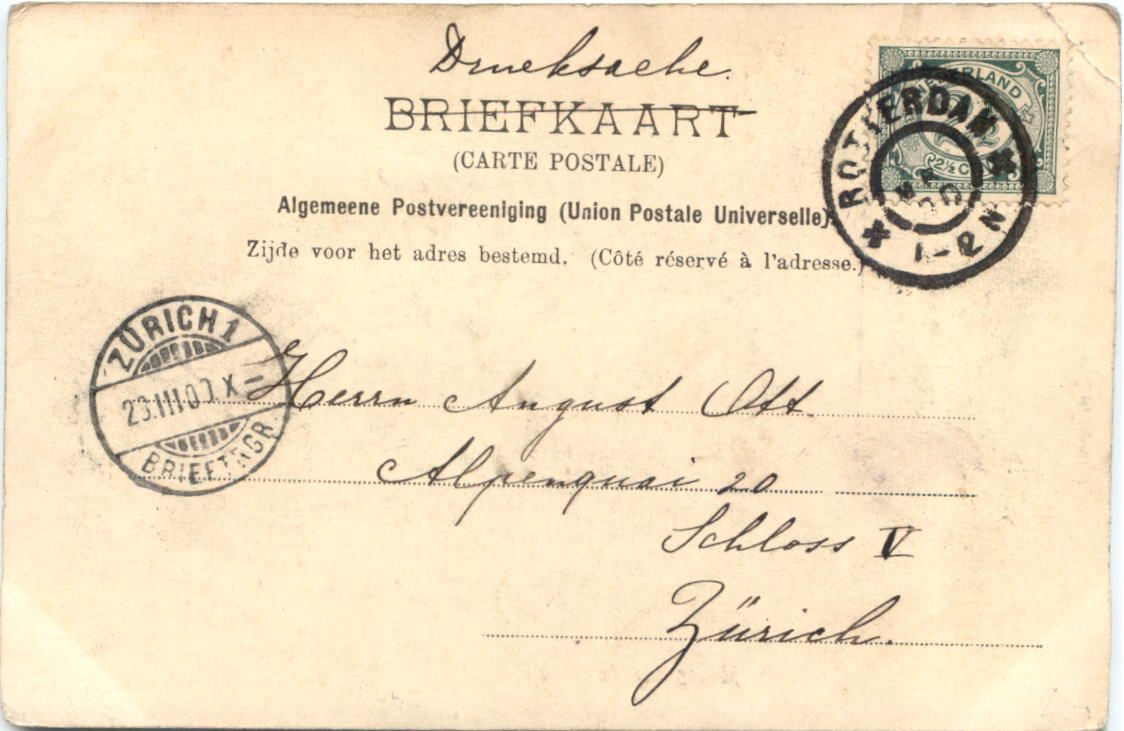 Drucksache.
BRIEFKAART
(CARTE POSTALE)
Algemeene Postvereeniging (Union Postale Universelle).
Zijde voor het adres bestemd. (Côté réservé à l'adresse.)
NEDERLAND
2½ C
ROTTERDAM
1-2 N
ZÜRICH 1
III 00 X
BRIEFTRGR
Herrn August Ott
Alpenquai 20
Schloss V
Zürich.